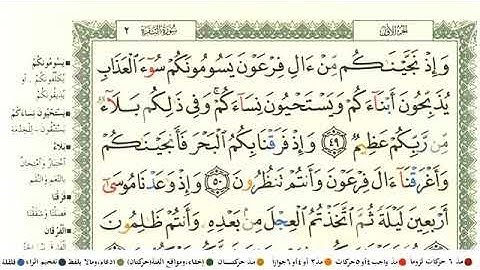 الجزء الأول
سُورَةُ البَقَرَةِ ٢
وَإِذْ نَجَّيْنَٰكُم مِّنْ ءَالِ فِرْعَوْنَ يَسُومُونَكُمْ سُوٓءَ ٱلْعَذَابِ
يُذَبِّحُونَ أَبْنَآءَكُمْ وَيَسْتَحْيُونَ نِسَآءَكُمْ ۚ وَفِى ذَٰلِكُم بَلَآءٌ
مِّن رَّبِّكُمْ عَظِيمٌ ٤٩ وَإِذْ فَرَقْنَا بِكُمُ ٱلْبَحْرَ فَأَنجَيْنَٰكُمْ
وَأَغْرَقْنَآ ءَالَ فِرْعَوْنَ وَأَنتُمْ تَنظُرُونَ ٥٠ وَإِذْ وَٰعَدْنَا مُوسَىٰٓ
أَرْبَعِينَ لَيْلَةً ثُمَّ ٱتَّخَذْتُمُ ٱلْعِجْلَ مِنۢ بَعْدِهِۦ وَأَنتُمْ ظَٰلِمُونَ
يَسُومُونَكُمْ
يُكَلِّفُونَكُمْ أو
يُذِيقُونَكُمْ
يَسْتَحْيُونَ نِسَاءَكُمْ
يَسْتَبْقُونَ - للخِدْمَةِ
بَلَاءٌ
اخْتِبَارٌ وامْتِحَانٌ
بالنِّعَمِ والنِّقَمِ
فَرَقْنَا
فَصَلْنَا وشَقَقْنَا
مد ٦ حركات لزوما ● مد واجب ٤ أو ٥ حركات ● مد ٢ أو ٤ أو ٦ جوازا ● مد حركتان ● إخفاء، ومواقع الغنة (حركتان) ● ادغام، ومالا يلفظ ● تفخيم الراء ● قلقلة